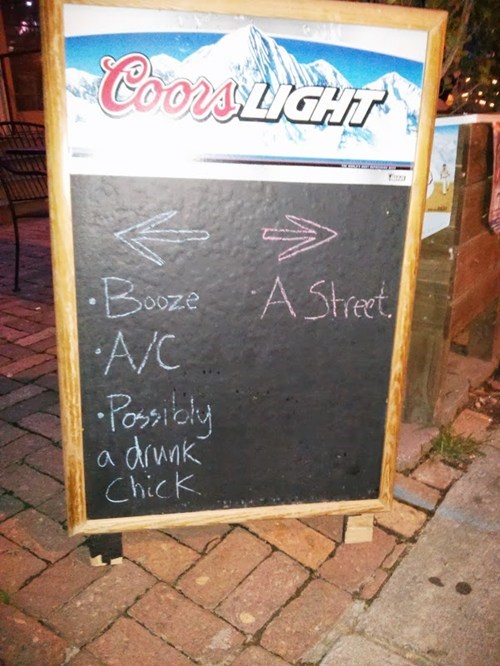 Coors LIGHT
• Booze
• A/C
• Possibly
a drunk
chick
• A Street